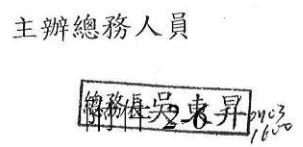 主辦總務人員
總務長吳東昇
附件2-6
0403
1600